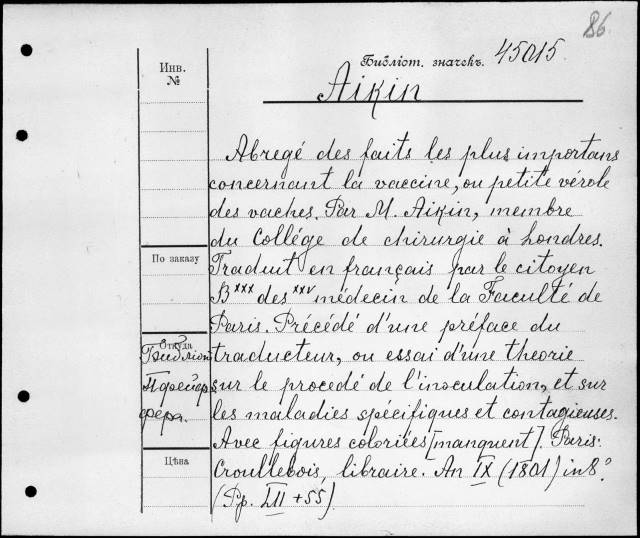 86
Библіот. значекъ. 45015.
Инв.
№
Aikin
Abregé des faits les plus importans
concernant la vaccine, ou petite vérole
des vaches. Par M. Aikin, membre
du Collége de chirurgie à Londres.
По заказу
Traduit en français par le citoyen
B xxx des xxv médecin de la Faculté de
Paris. Précédé d'une préface du
Откуда
Библіот.
traducteur, ou essai d'une theorie
sur le procedé de l'inoculation, et sur
les maladies spécifiques et contagieuses.
Avec figures coloriées [manquent]. Paris:
Цѣна
Croullebois, libraire. An IX (1801) in 8°
(Pp. LII + 55)